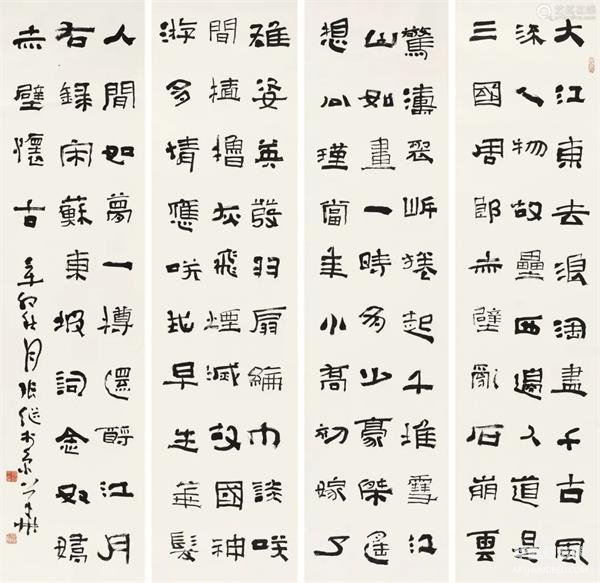 大江東去浪淘盡千古風
流人物故壘西邊人道是
三國周郎赤壁亂石崩雲
驚濤裂岸捲起千堆雪江
山如畫一時多少豪傑遙
想公瑾當年小喬初嫁了
雄姿英發羽扇綸巾談咲
間檣櫓灰飛煙滅故國神
游多情應咲我早生華髮
人間如夢一樽還酹江月
右録宋蘇東坡詞念奴嬌
赤壁懷古 辛卯秋月張继於京